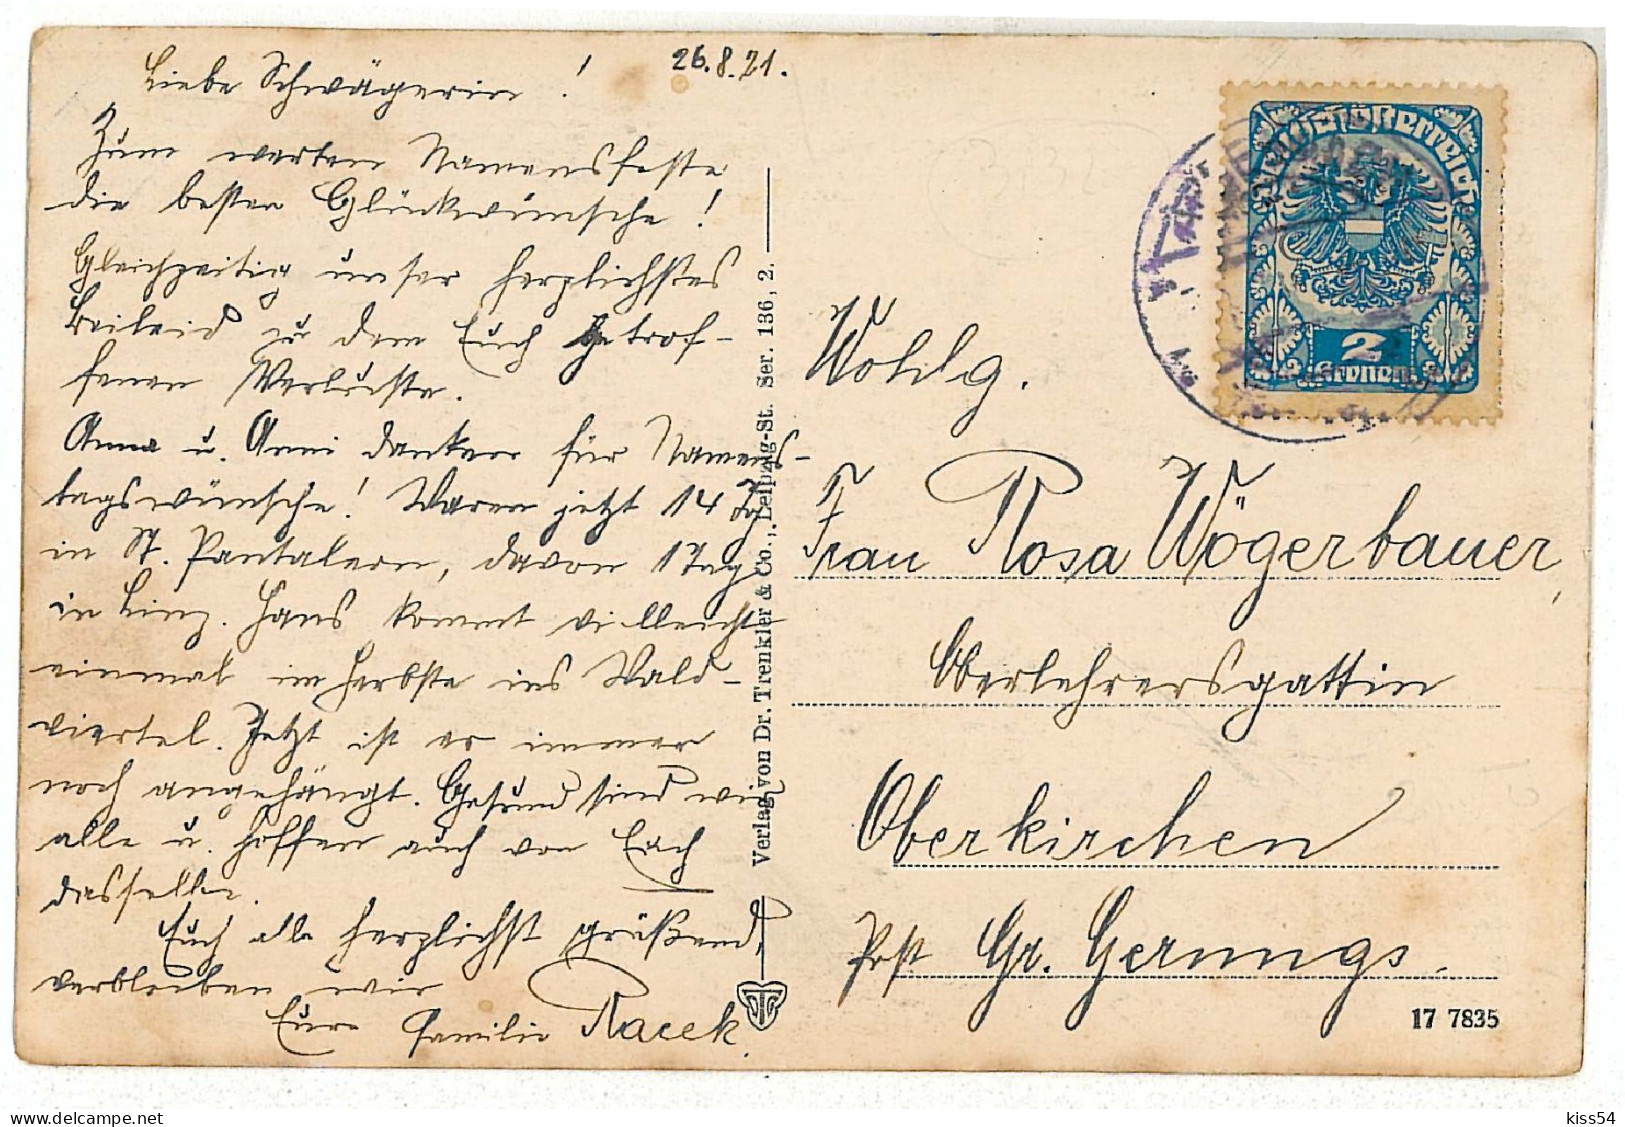 26.8.21.
Liebe Schwägerin !
Zum werten Namensfeste
die besten Glückwünsche !
Gleichzeitig unser herzlichstes
Beileid zu dem Euch betrof-
fenen Verluste.
Anna u. Anni danken für Namens-
tagswünsche ! Waren jetzt 14 Tg
in St. Pantaleon, davon 1 Tag
in Linz. Hans kommt vielleicht
einmal im Herbste ins Wald-
viertel. Jetzt ist er immer
noch angehängt. Gesund sind wir
alle u. hoffen auch von Euch
dasselbe.
Euch alle herzlichst grüßend,
verbleiben wir
Eure Familie Racek
Verlag von Dr. Trenkler & Co., Leipzig-St. Ser. 136, 2.
Deutschösterreich
2
Kronen
Wohlg.
Frau Rosa Wögerbauer,
Oberlehrersgattin
Oberkirchen
Post Gr. Gerungs.
17 7835
kiss54